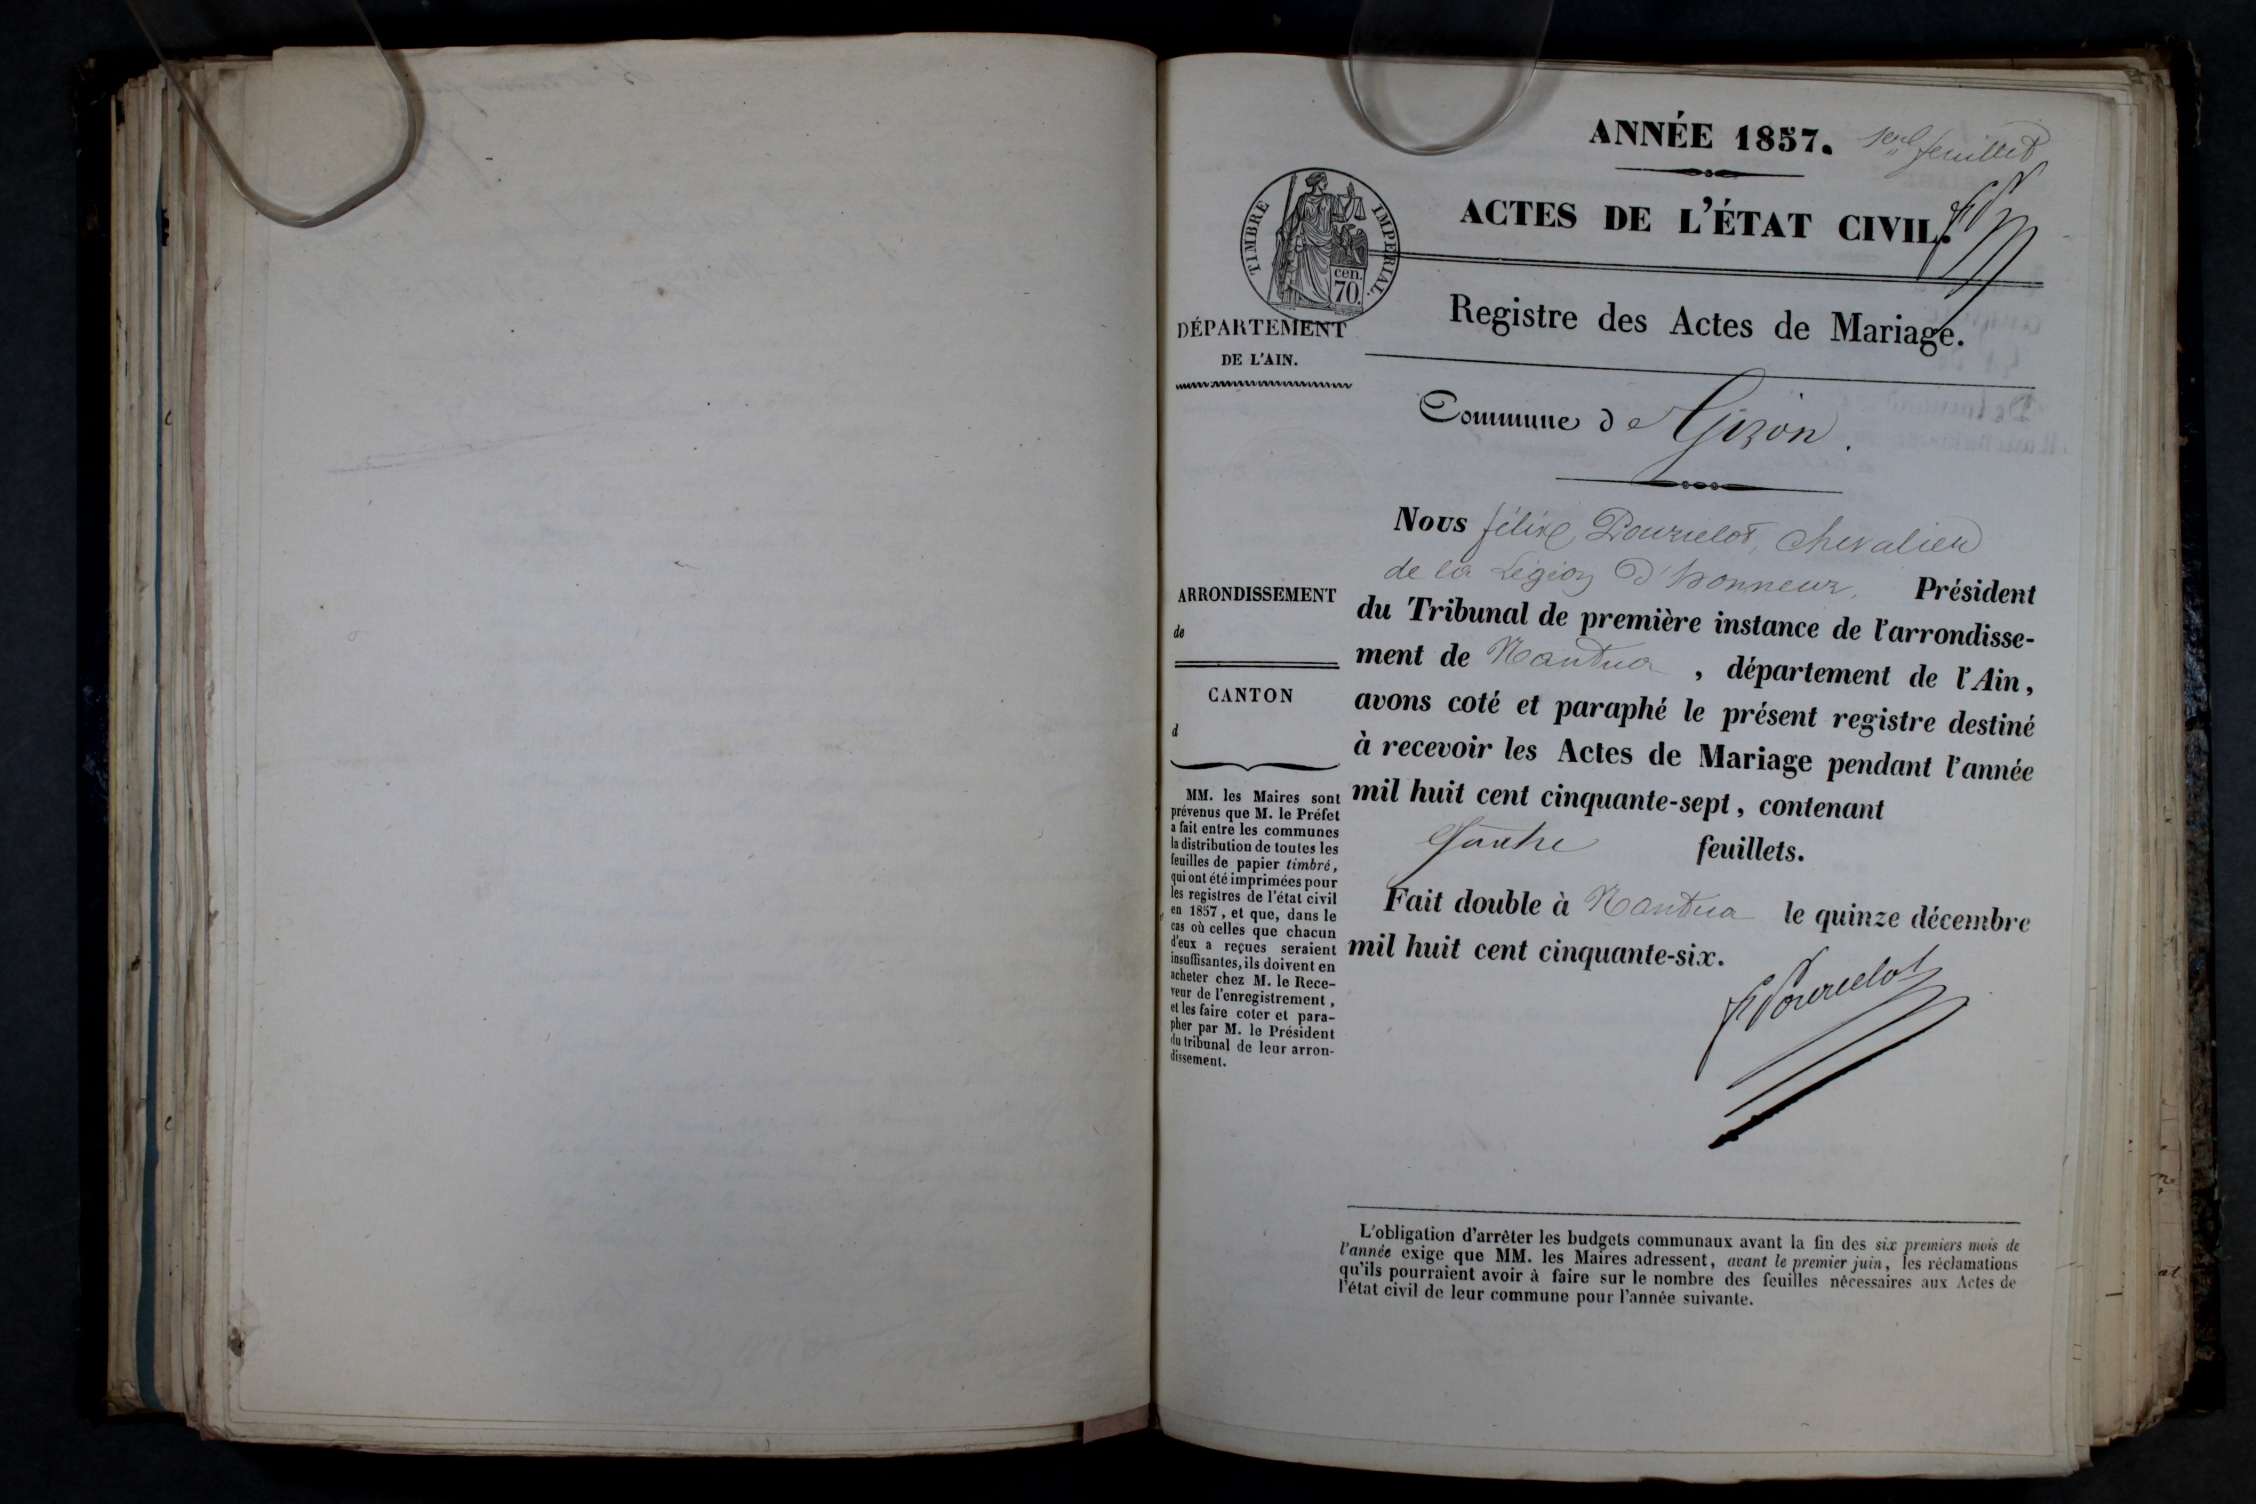 ANNÉE 1857.
feuillet
ACTES DE L'ÉTAT CIVIL.
TIMBRE IMPÉRIAL.
cen.
70.
Registre des Actes de Mariage.
DÉPARTEMENT
DE L'AIN.
Commune de Giron.
Nous félix Pourcelot, chevalier
de la Légion d'honneur, Président
du Tribunal de première instance de l'arrondisse-
ment de Nantua, département de l'Ain,
avons coté et paraphé le présent registre destiné
à recevoir les Actes de Mariage pendant l'année
mil huit cent cinquante-sept, contenant
quatre feuillets.
Fait double à Nantua le quinze décembre
mil huit cent cinquante-six.
F Pourcelot
ARRONDISSEMENT
de
CANTON
d
MM. les Maires sont
prévenus que M. le Préfet
a fait entre les communes
la distribution de toutes les
feuilles de papier timbré,
qui ont été imprimées pour
les registres de l'état civil
en 1857, et que, dans le
cas où celles que chacun
d'eux a reçues seraient
insuffisantes, ils doivent en
acheter chez M. le Rece-
veur de l'enregistrement,
et les faire coter et para-
pher par M. le Président
du tribunal de leur arron-
dissement.
L'obligation d'arrêter les budgets communaux avant la fin des six premiers mois de
l'année exige que MM. les Maires adressent, avant le premier juin, les réclamations
qu'ils pourraient avoir à faire sur le nombre des feuilles nécessaires aux Actes de
l'état civil de leur commune pour l'année suivante.